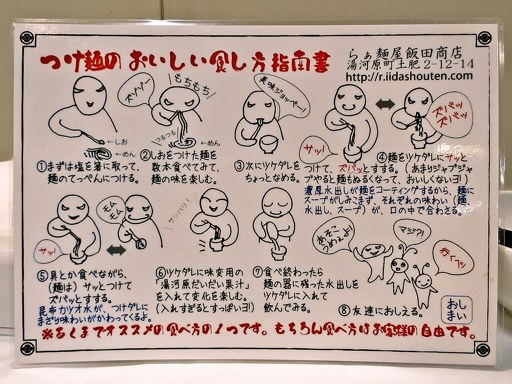 つけ麺のおいしい食し方指南書
らぁ麺屋飯田商店
湯河原町土肥2-12-14
http://r.iidashouten.com
ズッゾー
もちもち
つるつる
←しお
←めん
←めん
サッ!
ズパッ
ズパッ
①まずは塩を箸に取って、
麺のてっぺんにつける。
②しおをつけた麺を
数本食べてみて、
麺の味を楽しむ。
③次にツケダレを
ちょっとなめる。
④麺をツケダレにサッと
つけて、ズパッとすする。(あまりジャブジャ
ブやると麺もぬるくなって、おいしくないヨ!)
濃厚水出しが麺をコーティングするから、麺に
スープがしみこまず、それぞれの味わい(麺、
水出し、スープ)が、口の中で合わさる。
サッ!
モム
モム
サッパリ!
あそこ
うめぇよ!
マジ?!
行くべッ
⑤具とか食べながら、
(麺は)サッとつけて
ズパッとすする。
昆布カツオ水が、つけダレに
まざり味わいがかわってくるよ。
⑥ツケダレに味変用の
「湯河原だいだい果汁」
を入れて変化を楽しむ。
(入れすぎるとすっぱいヨ!)
⑦食べ終わったら
麺の器に残った水出しを
ツケダレに入れて
飲んでみる。
⑧友達におしえる。
おし
まい
※あくまでオススメの食べ方の1つです。もちろん食べ方はお客様の自由です。